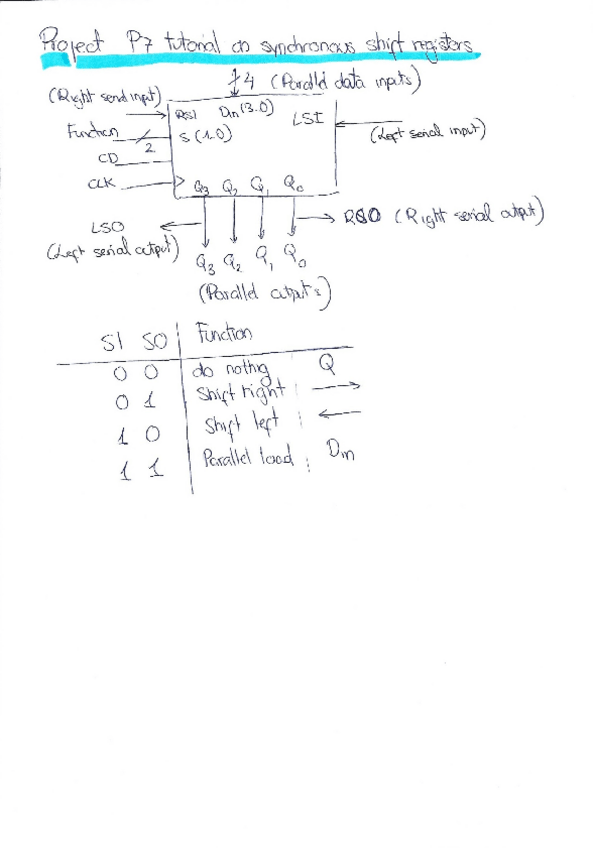 Project P7 tutorial on synchronous shift registers
4 (Parallel data inputs)
(Right send input)
RSI Din(3.0) LSI
Function
2
S(1.0)
(Left serial input)
CD
CLK
Q3 Q2 Q1 Q0
LSO
RSO (Right serial output)
(Left serial output)
Q3 Q2 Q1 Q0
(Parallel outputs)
S1 S0 Function
0 0 do nothig Q
0 1 Shift right : →
1 0 Shift left : ←
1 1 Parallel load : Din